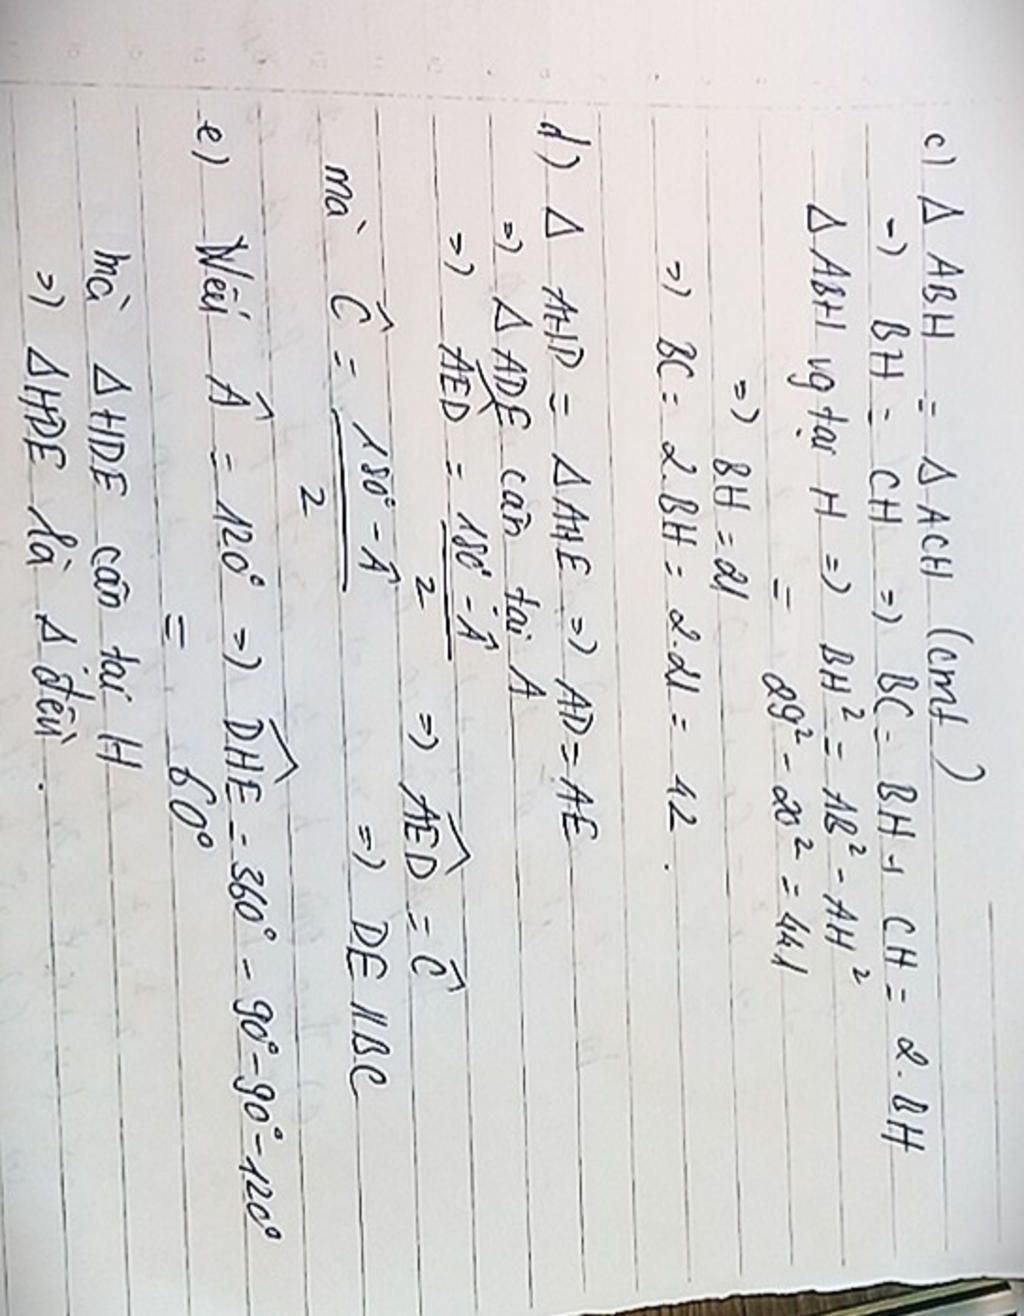 c) Δ ABH = Δ ACH (cmt)
=) BH = CH =) BC = BH + CH = 2.BH
Δ ABH vg tại H =) BH² = AB² - AH²
= 29² - 20² = 441
=) BH = 21
=) BC = 2.BH = 2.21 = 42.
d) Δ AHD = Δ AHE =) AD = AE
=) Δ ADE cân tại A
=) \widehat{AED} = \frac{180° - \hat{A}}{2} =) \widehat{AED} = \hat{C}
mà \hat{C} = \frac{180° - \hat{A}}{2} =) DE // BC
e) Nếu \hat{A} = 120° =) \widehat{DHE} = 360° - 90° - 90° - 120°
= 60°
mà ΔHDE cân tại H
=) ΔHDE là Δ đều.